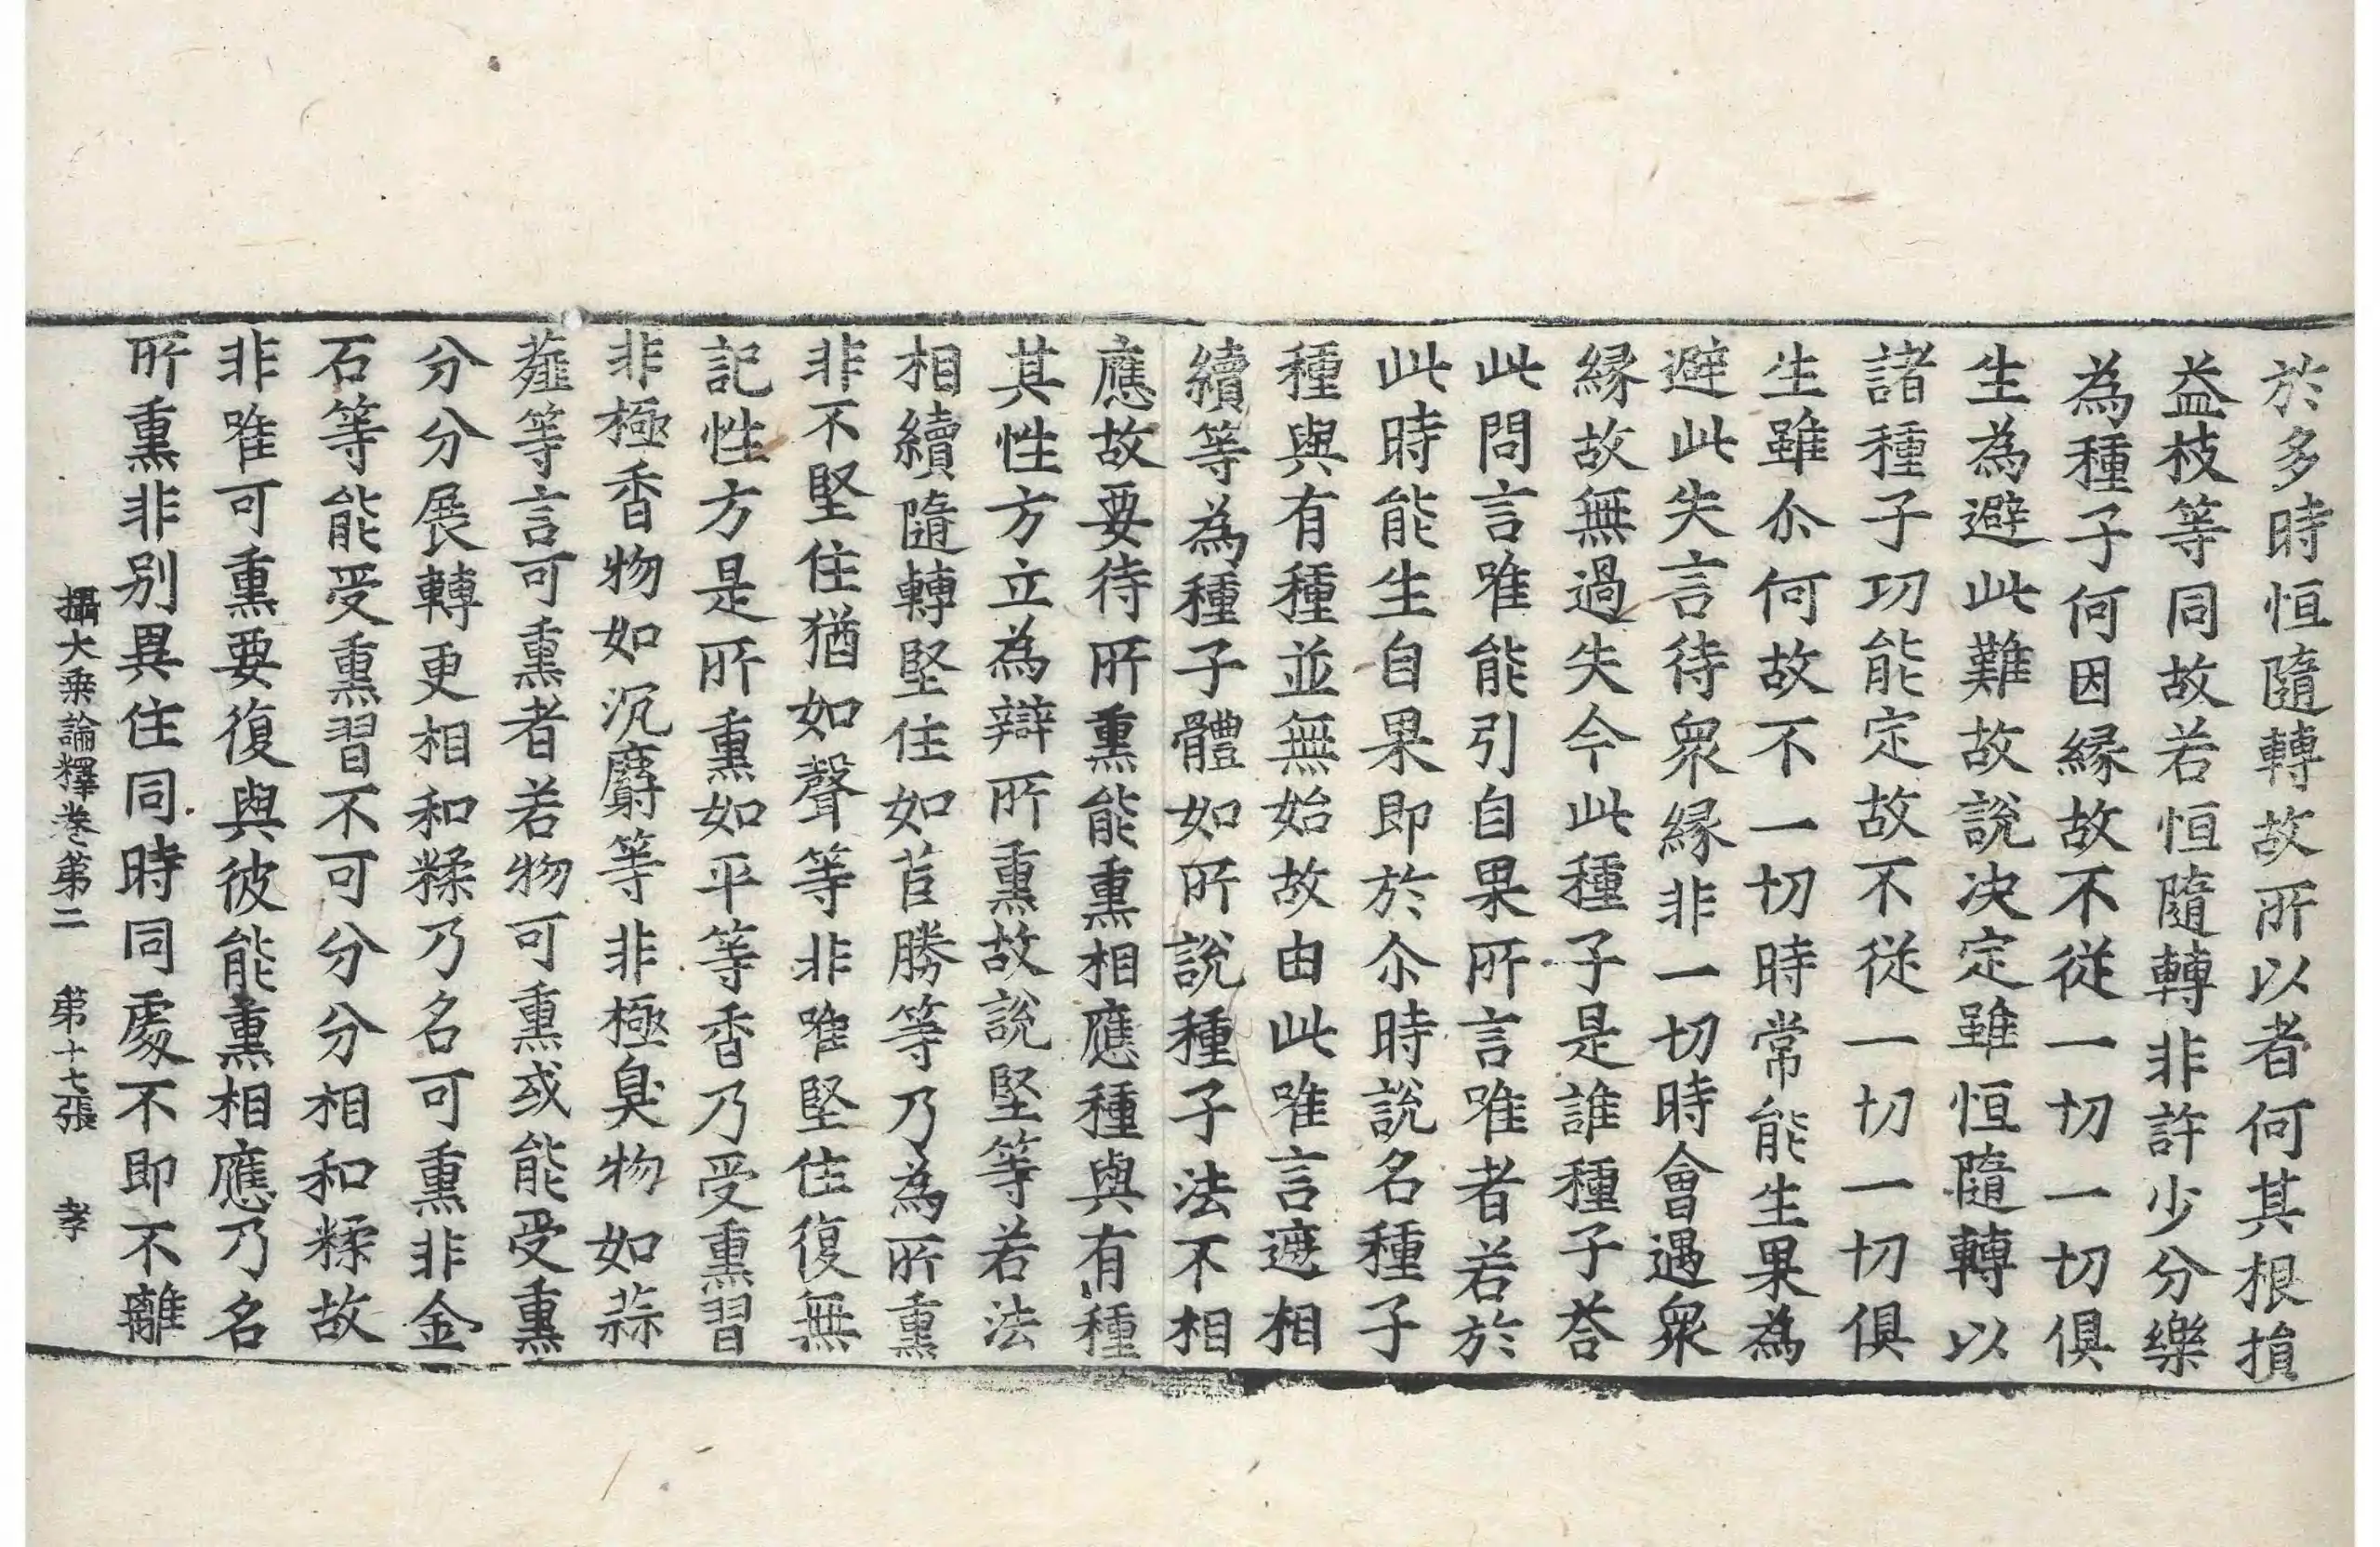 於多時恒隨轉故所以者何其根損
益枝等同故若恒隨轉非許少分樂
為種子何因縁故不從一切一切俱
生為避此難故說决定雖恒隨轉以
諸種子功能定故不從一切一切俱
生雖尒何故不一切時常能生果為
避此失言待衆縁非一切時會遇衆
縁故無過失今此種子是誰種子荅
此問言唯能引自果所言唯者若於
此時能生自果即於尒時說名種子
種與有種並無始故由此唯言遮相
續等為種子體如所說種子法不相
應故要待所熏能熏相應種與有種
其性方立為辯所熏故說堅等若法
相續隨轉堅住如苣勝等乃為所熏
非不堅住猶如聲等非唯堅住復無
記性方是所熏如平等香乃受熏習
非極香物如沉麝等非極臭物如蒜
薤等言可熏者若物可熏或能受熏
分分展轉更相和糅乃名可熏非金
石等能受熏習不可分分相和糅故
非唯可熏要復與彼能熏相應乃名
所熏非别異住同時同處不即不離
攝大乗論釋卷第二 第十七張 孝